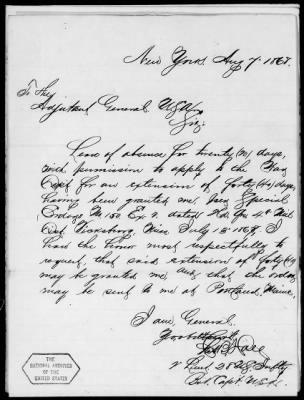 New York Aug 7. 1868.
To the
Adjutant General U.S.A.
Sir:
Leave of absence for twenty (20) days,
with permission to apply to the War
Dept for an extension of forty (40) days,
having been granted me by Special
Orders No 150 Ex. 2. dated Hd. Qrs 4th Mil
Dist Vicksburg, Miss July 13th 1868. I
have the honor most respectfully to
request, that said extension of forty (40)
may be granted me and that the orders
may be sent to me at Portland, Maine.
I am General
Your obt Servt
Hall
2 Lieut 28 U.S. Infty
Bvt. Capt. U.S.A.
THE
NATIONAL ARCHIVES
OF THE
UNITED STATES